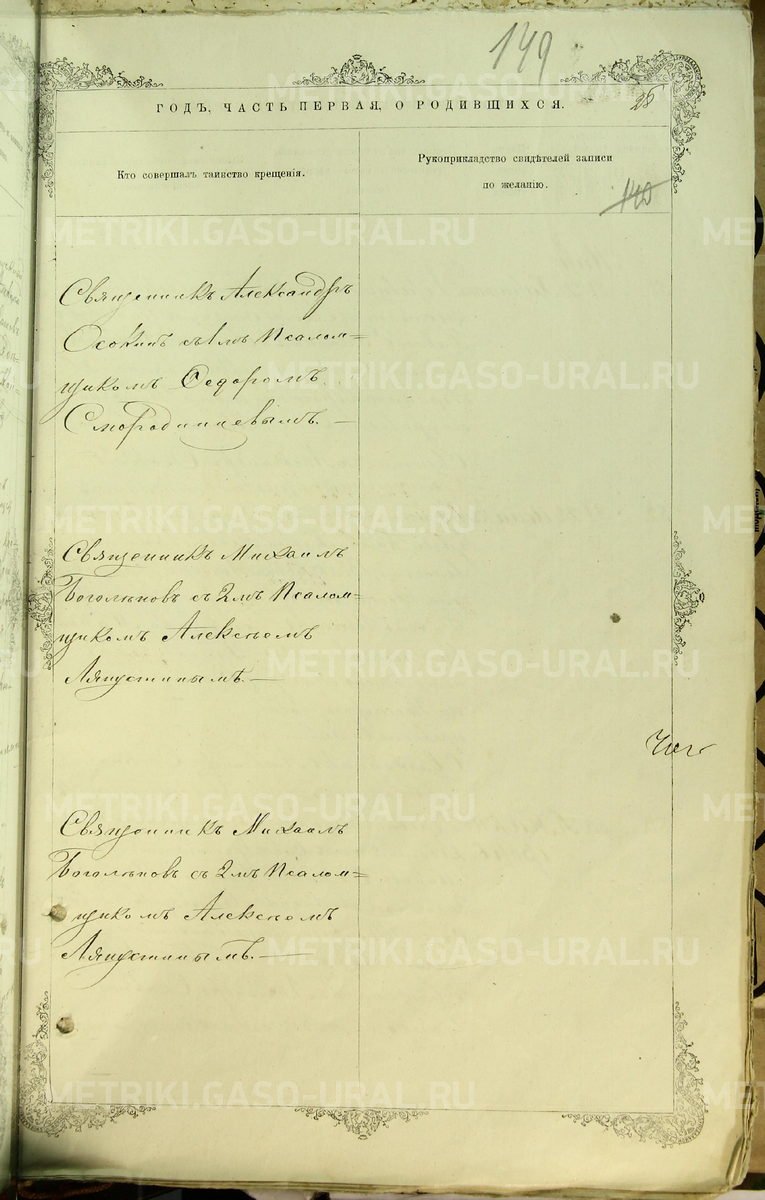 149
ГОДЪ, ЧАСТЬ ПЕРВАЯ, О РОДИВШИХСЯ.
Кто совершалъ таинство крещенія.
Рукоприкладство свидѣтелей записи
по желанію.
140
Священникъ Александръ
Осокинъ съ 1мъ Псалом=
щикомъ Ѳедоромъ
Смородинцевымъ. —
Священникъ Михаилъ
Боголѣповъ съ 2мъ Псалом=
щикомъ Алексѣемъ
Ляпустинымъ. —
Священникъ Михаилъ
Боголѣповъ съ 2мъ Псалом=
щикомъ Алексѣемъ
Ляпустинымъ. —
METRIKI.GASO-URAL.RU